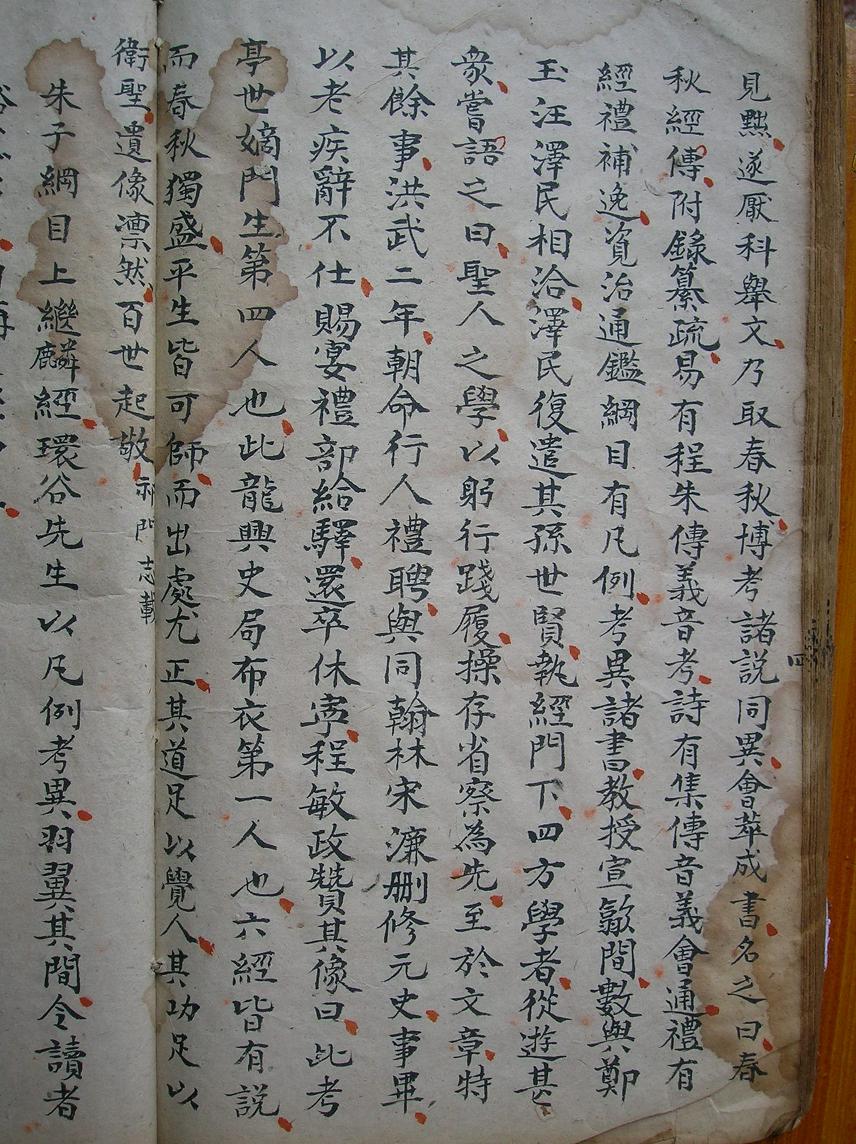 見黜遂厭科舉文乃取春秋博考諸説同異會萃成書名之曰春
秋經傳附錄纂疏易有程朱傳義音考詩有集傳音義會通禮有
經禮補逸資治通鑑綱目有凡例考異諸書教授宣歙間數與鄭
玉汪澤民相洽澤民復遣其孫世賢執經門下四方學者從遊甚
衆嘗語之曰聖人之學以躬行踐履操存省察為先至於文章特
其餘事洪武二年朝命行人禮聘與同翰林宋濂刪修元史事畢
以老疾辭不仕賜宴禮部給驛還卒休寧程敏政贊其像曰此考
亭世嫡門生第四人也此龍興史局布衣第一人也六經皆有説
而春秋獨盛平生皆可師而出處尤正其道足以覺人其功足以
衛聖遺像凛然百世起敬 祁門志載
朱子綱目上繼麟經環谷先生以凡例考異羽翼其間令讀者